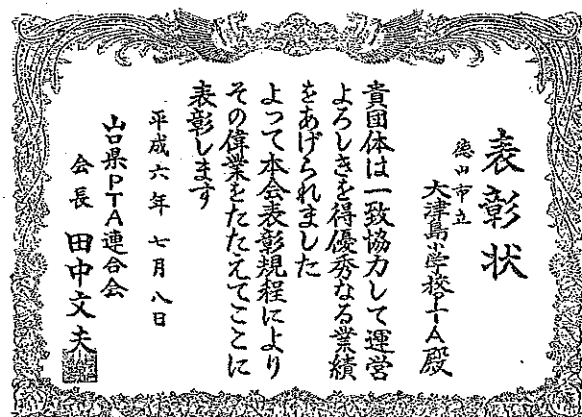 表彰状
徳山市立
大津島小学校PTA殿
貴団体は一致協力して運営
よろしきを得優秀なる業績
をあげられました
よって本会表彰規程により
その偉業をたたえてここに
表彰します
平成六年七月八日
山口県PTA連合会
会長 田中文夫